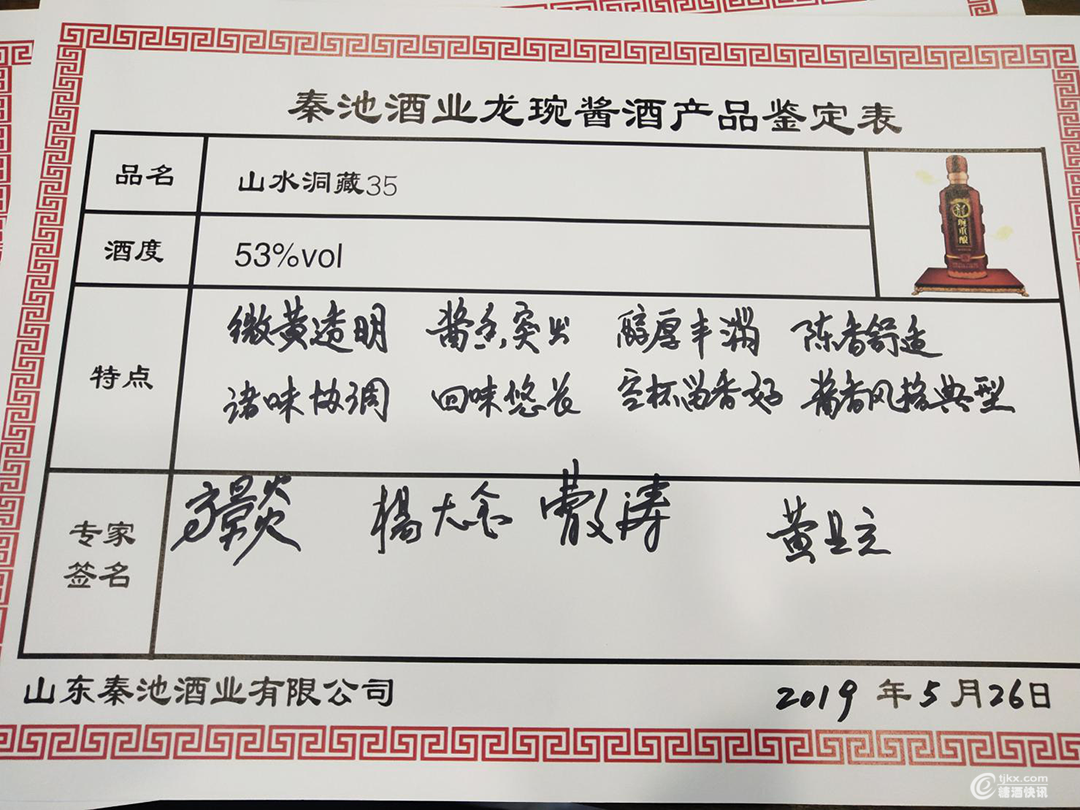 秦池酒业龙琬酱酒产品鉴定表
品名 山水洞藏35
酒度 53%vol
琬重酿
特点
微黄透明 酱香突出 醇厚丰满 陈香舒适
诸味协调 回味悠长 空杯留香好 酱香风格典型
专家
签名
杨大金 曹文涛
山东秦池酒业有限公司 2019年5月26日
tjkx.com
糖酒快讯